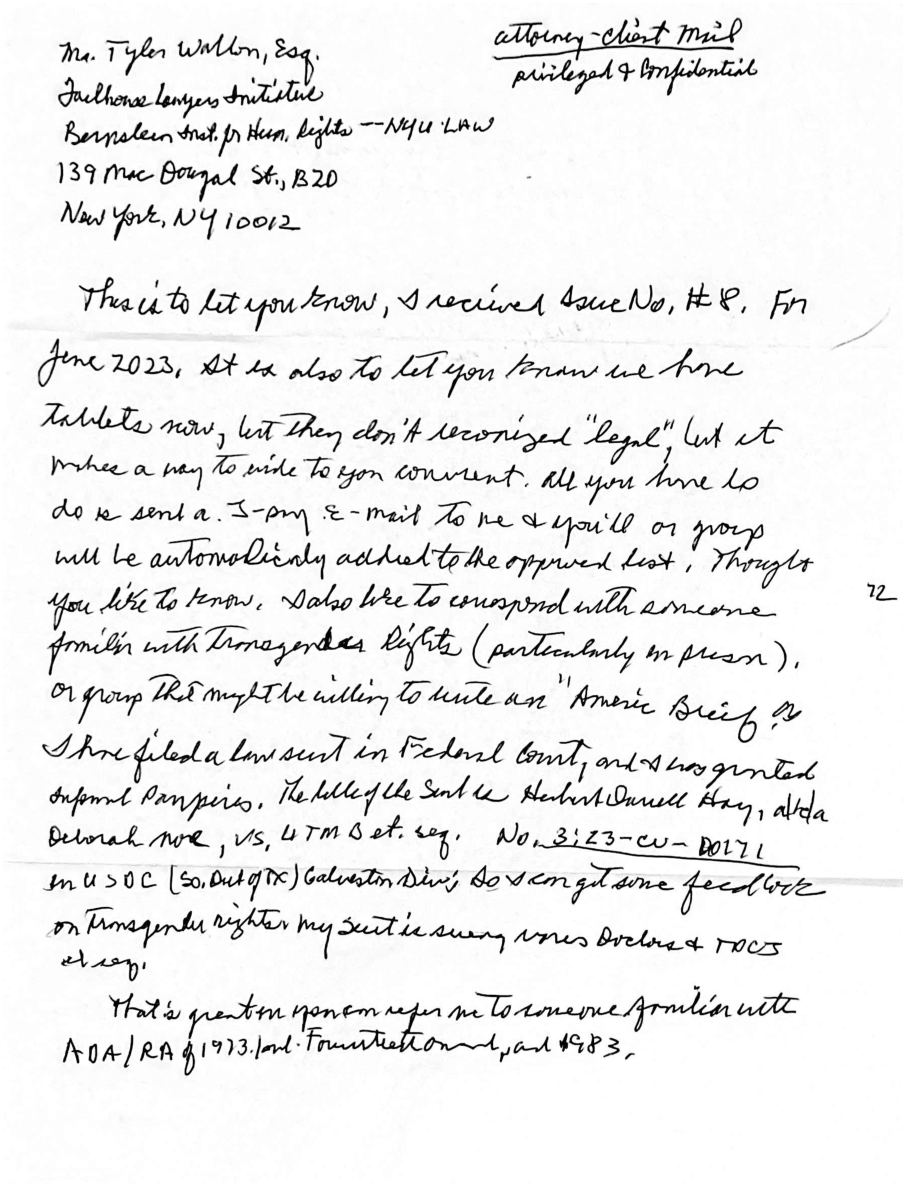 attorney-client Mail
privileged & Confidential
Mr. Tyler Walton, Esq.
Jailhouse Lawyers Initiative
Bernstein Inst. for Hum. Rights — NYU-LAW
139 Mac Dougal St., B20
New York, NY 10012
This is to let you know, I recived Issue No, #8. For
June 2023, It is also to let you know we have
tablets now, but they don't reconized "legal", but it
makes a way to to you . All you have to
do is sent a J-pay E-mail to me & you'll or group
will be automaticnly added to the approved list. Thought
you like to know. I also like to correspond with someone
familir with Transgender Rights (particularly in prison),
or group that might be willing to write an "Americ Brief" or
72
I have filed a law suit in Federal Court, and I was granted
Informl Pauperis. The title of the Suit is Herbert Darrell Hay, a/k/a
Deborah , vs, UTMB et. seq. No. 3:23-cv-00171
in USDC (So. Dist of TX) Galveston Div; So I can get some feedback
on Transgender rights. My Suit is suing Doctors & TDCJ
et seq.
That's great you can refer me to someone familiar with
ADA/RA of 1973. , and 1983.